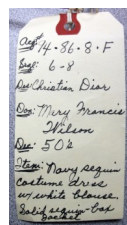 Acq# 14-86-8-F
Era#: 6-8
Des: Christian Dior
Don: Mery Francis
Wilson
Dec: 50's
Item: Navy sequin
costume dress
w/ white blouse.
Solid sequin box
jacket